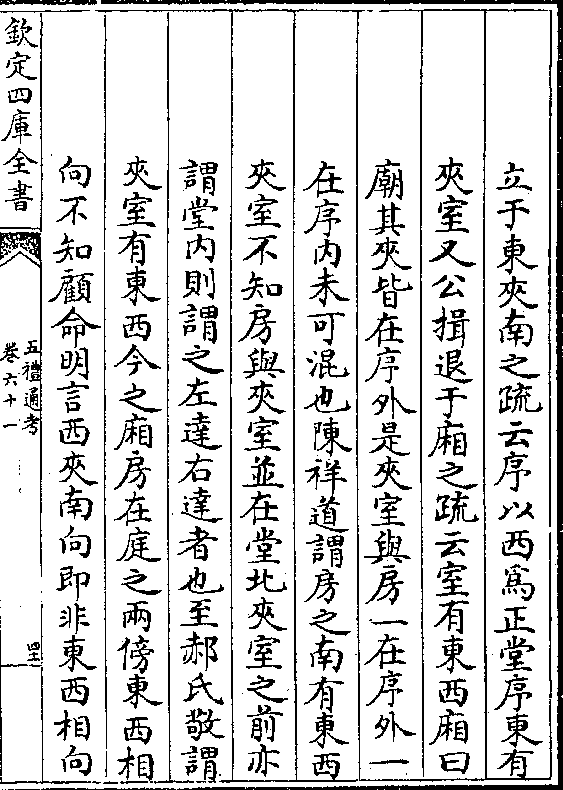 立于東夾南之疏云序以西爲正堂序東有
夾室又公揖退于廂之疏云室有東西廂曰
廟其夾皆在序外是夾室與房一在序外一
在序内未可混也陳祥道謂房之南有東西
夾室不知房與夾室並在堂北夾室之前亦
謂堂内則謂之左達右達者也至郝氏敬謂
夾室有東西今之廂房在庭之兩傍東西相
向不知顧命明言西夾南向即非東西相向
欽定四庫全書
五禮通考
卷六十一